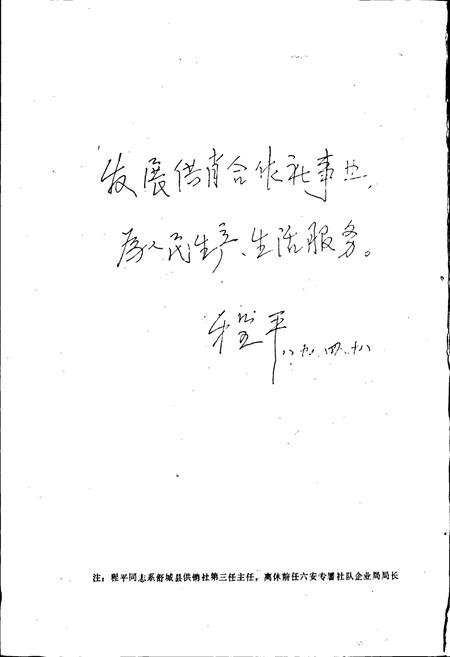 发展供销合作社事业，
为人民生产、生活服务。
程平
八九.四.十八
注：程平同志系舒城县供销社第三任主任，离休前任六安专署社队企业局局长